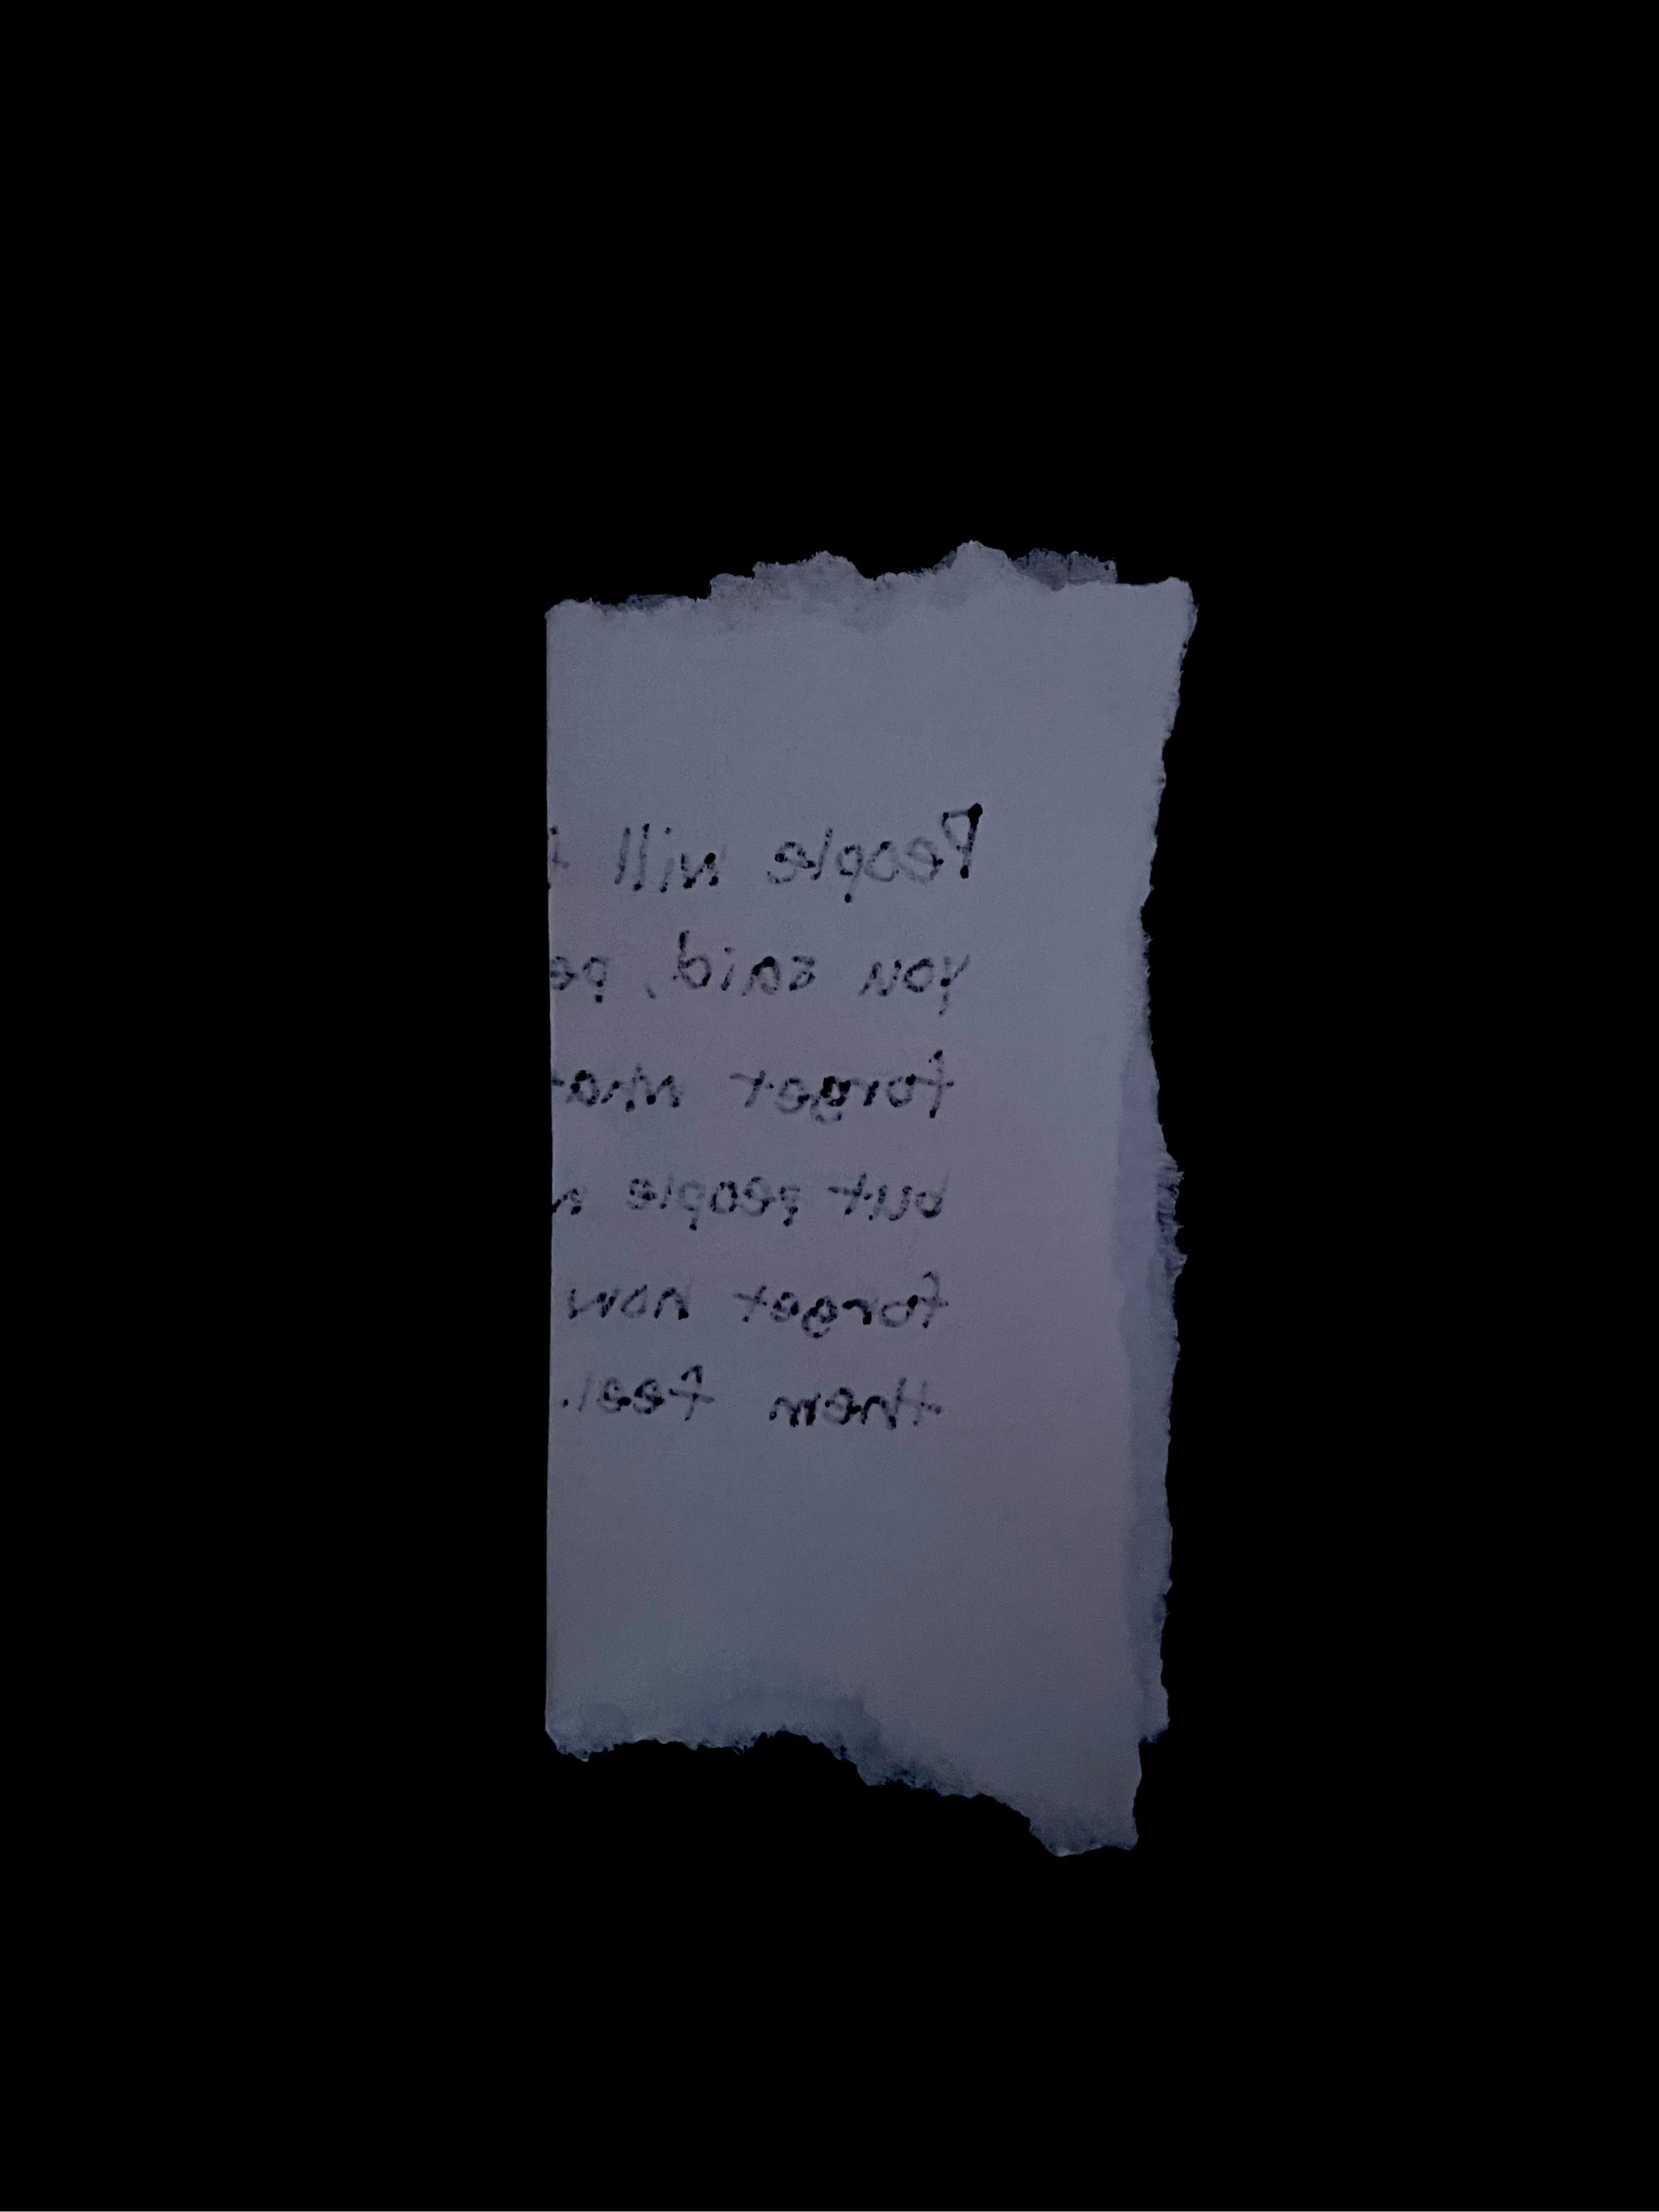 People will f
you said, pe
forget wha
but people n
forget how
them feel.